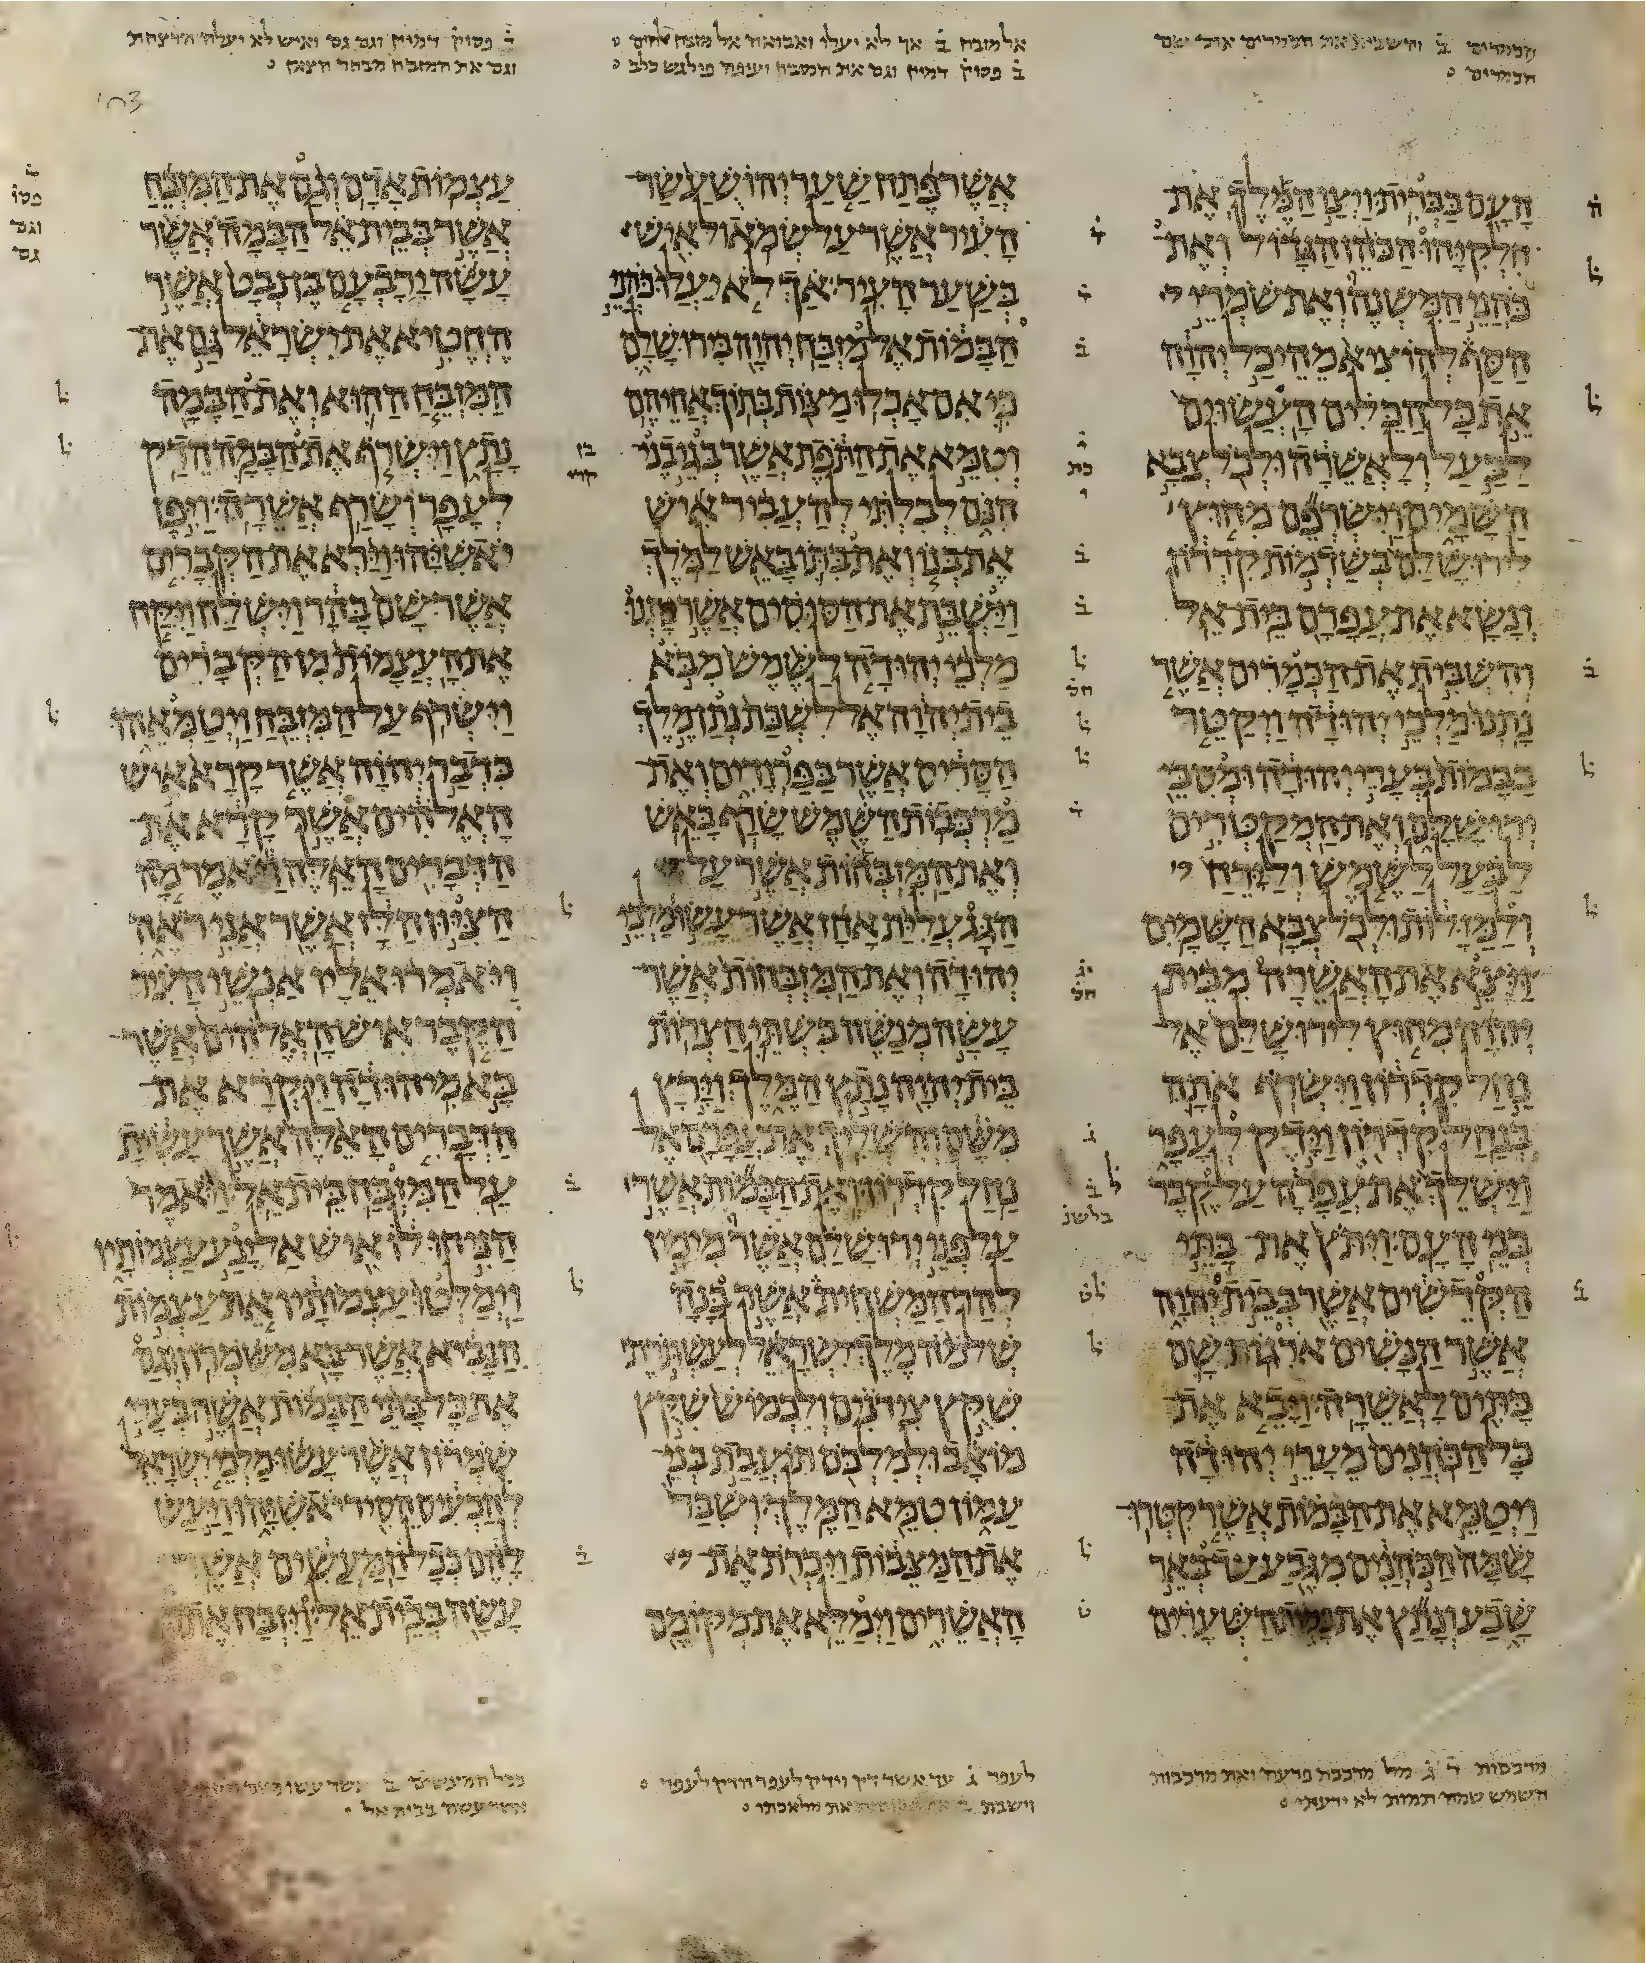 הכמרים ב והשבית את הכמרים את שם
הכמרים
אל מזבח ב אך לא יעלו ואבואה אל מזבח אלהים
ב פסוק דמיין וגם את המזבח ועיפה פולגש כלב
ב פסוק דמיין וגם גם ואיש לא יעלה הרצחת
וגם את המזבח מבחר הצאן
העם בברית ויצו המלך את
חלקיהו הכהן הגדול ואת
כהני המשנה ואת שמרי
הסף להוציא מהיכל יהוה
את כל הכלים העשוים
לבעל ולאשרה ולכל צבא
השמים וישרפם מחוץ
לירושלם בשדמות קדרון
ונשא את עפרם בית אל
והשבית את הכמרים אשר
נתנו מלכי יהודה ויקטר
בבמות בערי יהודה ומסבי
ירושלם ואת המקטרים
לבעל לשמש ולירח
ולמזלות ולכל צבא השמים
ויצא את האשרה מבית
יהוה מחוץ לירושלם אל
נחל קדרון וישרף אתה
בנחל קדרון וידק לעפר
וישלך את עפרה על קבר
בני העם ויתץ את בתי
הקדשים אשר בבית יהוה
אשר הנשים ארגות שם
בתים לאשרה ויבא את
כל הכהנים מערי יהודה
ויטמא את הבמות אשר קטרו
שמה הכהנים מגבע עד באר
שבע ונתץ את במות השערים
אשר פתח שער יהושע שר
העיר אשר על שמאול איש
בשער העיר אך לא יעלו כהני
הבמות אל מזבח יהוה בירושלם
כי אם אכלו מצות בתוך אחיהם
וטמא את התפת אשר בגי בני
הנם לבלתי להעביר איש
את בנו ואת בתו באש למלך
וישבת את הסוסים אשר נתנו
מלכי יהודה לשמש מבא
בית יהוה אל לשכת נתן מלך
הסריס אשר בפרורים ואת
מרכבות השמש שרף באש
ואת המזבחות אשר על
הגג עלית אחז אשר עשו מלכי
יהודה ואת המזבחות אשר
עשה מנשה בשתי חצרות
בית יהוה נתץ המלך וירץ
משם והשליך את עפרם אל
נחל קדרון ואת הבמות אשר
על פני ירושלם אשר מימין
להר המשחית אשר בנה
שלמה מלך ישראל לעשתרת
שקץ צידנים ולכמוש שקץ
מואב ולמלכם תועבת בני
עמון טמא המלך ושבר
את המצבות ויכרת את
האשרים וימלא את מקומם
עצמות אדם וגם את המזבח
אשר בבית אל הבמה אשר
עשה ירבעם בן נבט אשר
החטיא את ישראל גם את
המזבח ההוא ואת הבמה
נתץ וישרף את הבמה הדק
לעפר ושרף אשרה ויפן
יאשיהו וירא את הקברים
אשר שם בהר וישלח ויקח
את העצמות מן הקברים
וישרף על המזבח ויטמאהו
כדבר יהוה אשר קרא איש
האלהים אשר קרא את
הדברים האלה ויאמר מה
הציון הלז אשר אני ראה
ויאמרו אליו אנשי העיר
הקבר איש האלהים אשר
בא מיהודה ויקרא את
הדברים האלה אשר עשית
על המזבח בית אל ויאמר
הניחו לו איש אל ינע עצמותיו
וימלטו עצמותיו את עצמות
הנביא אשר בא משמרון וגם
את כל בתי הבמות אשר בערי
שמרון אשר עשו מלכי ישראל
להכעיס הסיר יאשיהו ויעש
להם ככל המעשים אשר
עשה בבית אל ויזבח את
מרכבות ד ג מל מרכבת פרעה ואת מרכבות
השמש שמה תמות לא ידעתי
לעפר ג עד אשר דק וידק לעפר הדק לעפר
וישבת ב את מלאכתו
ככל המעשים ב אשר עשו
אשר עשה בבית אל